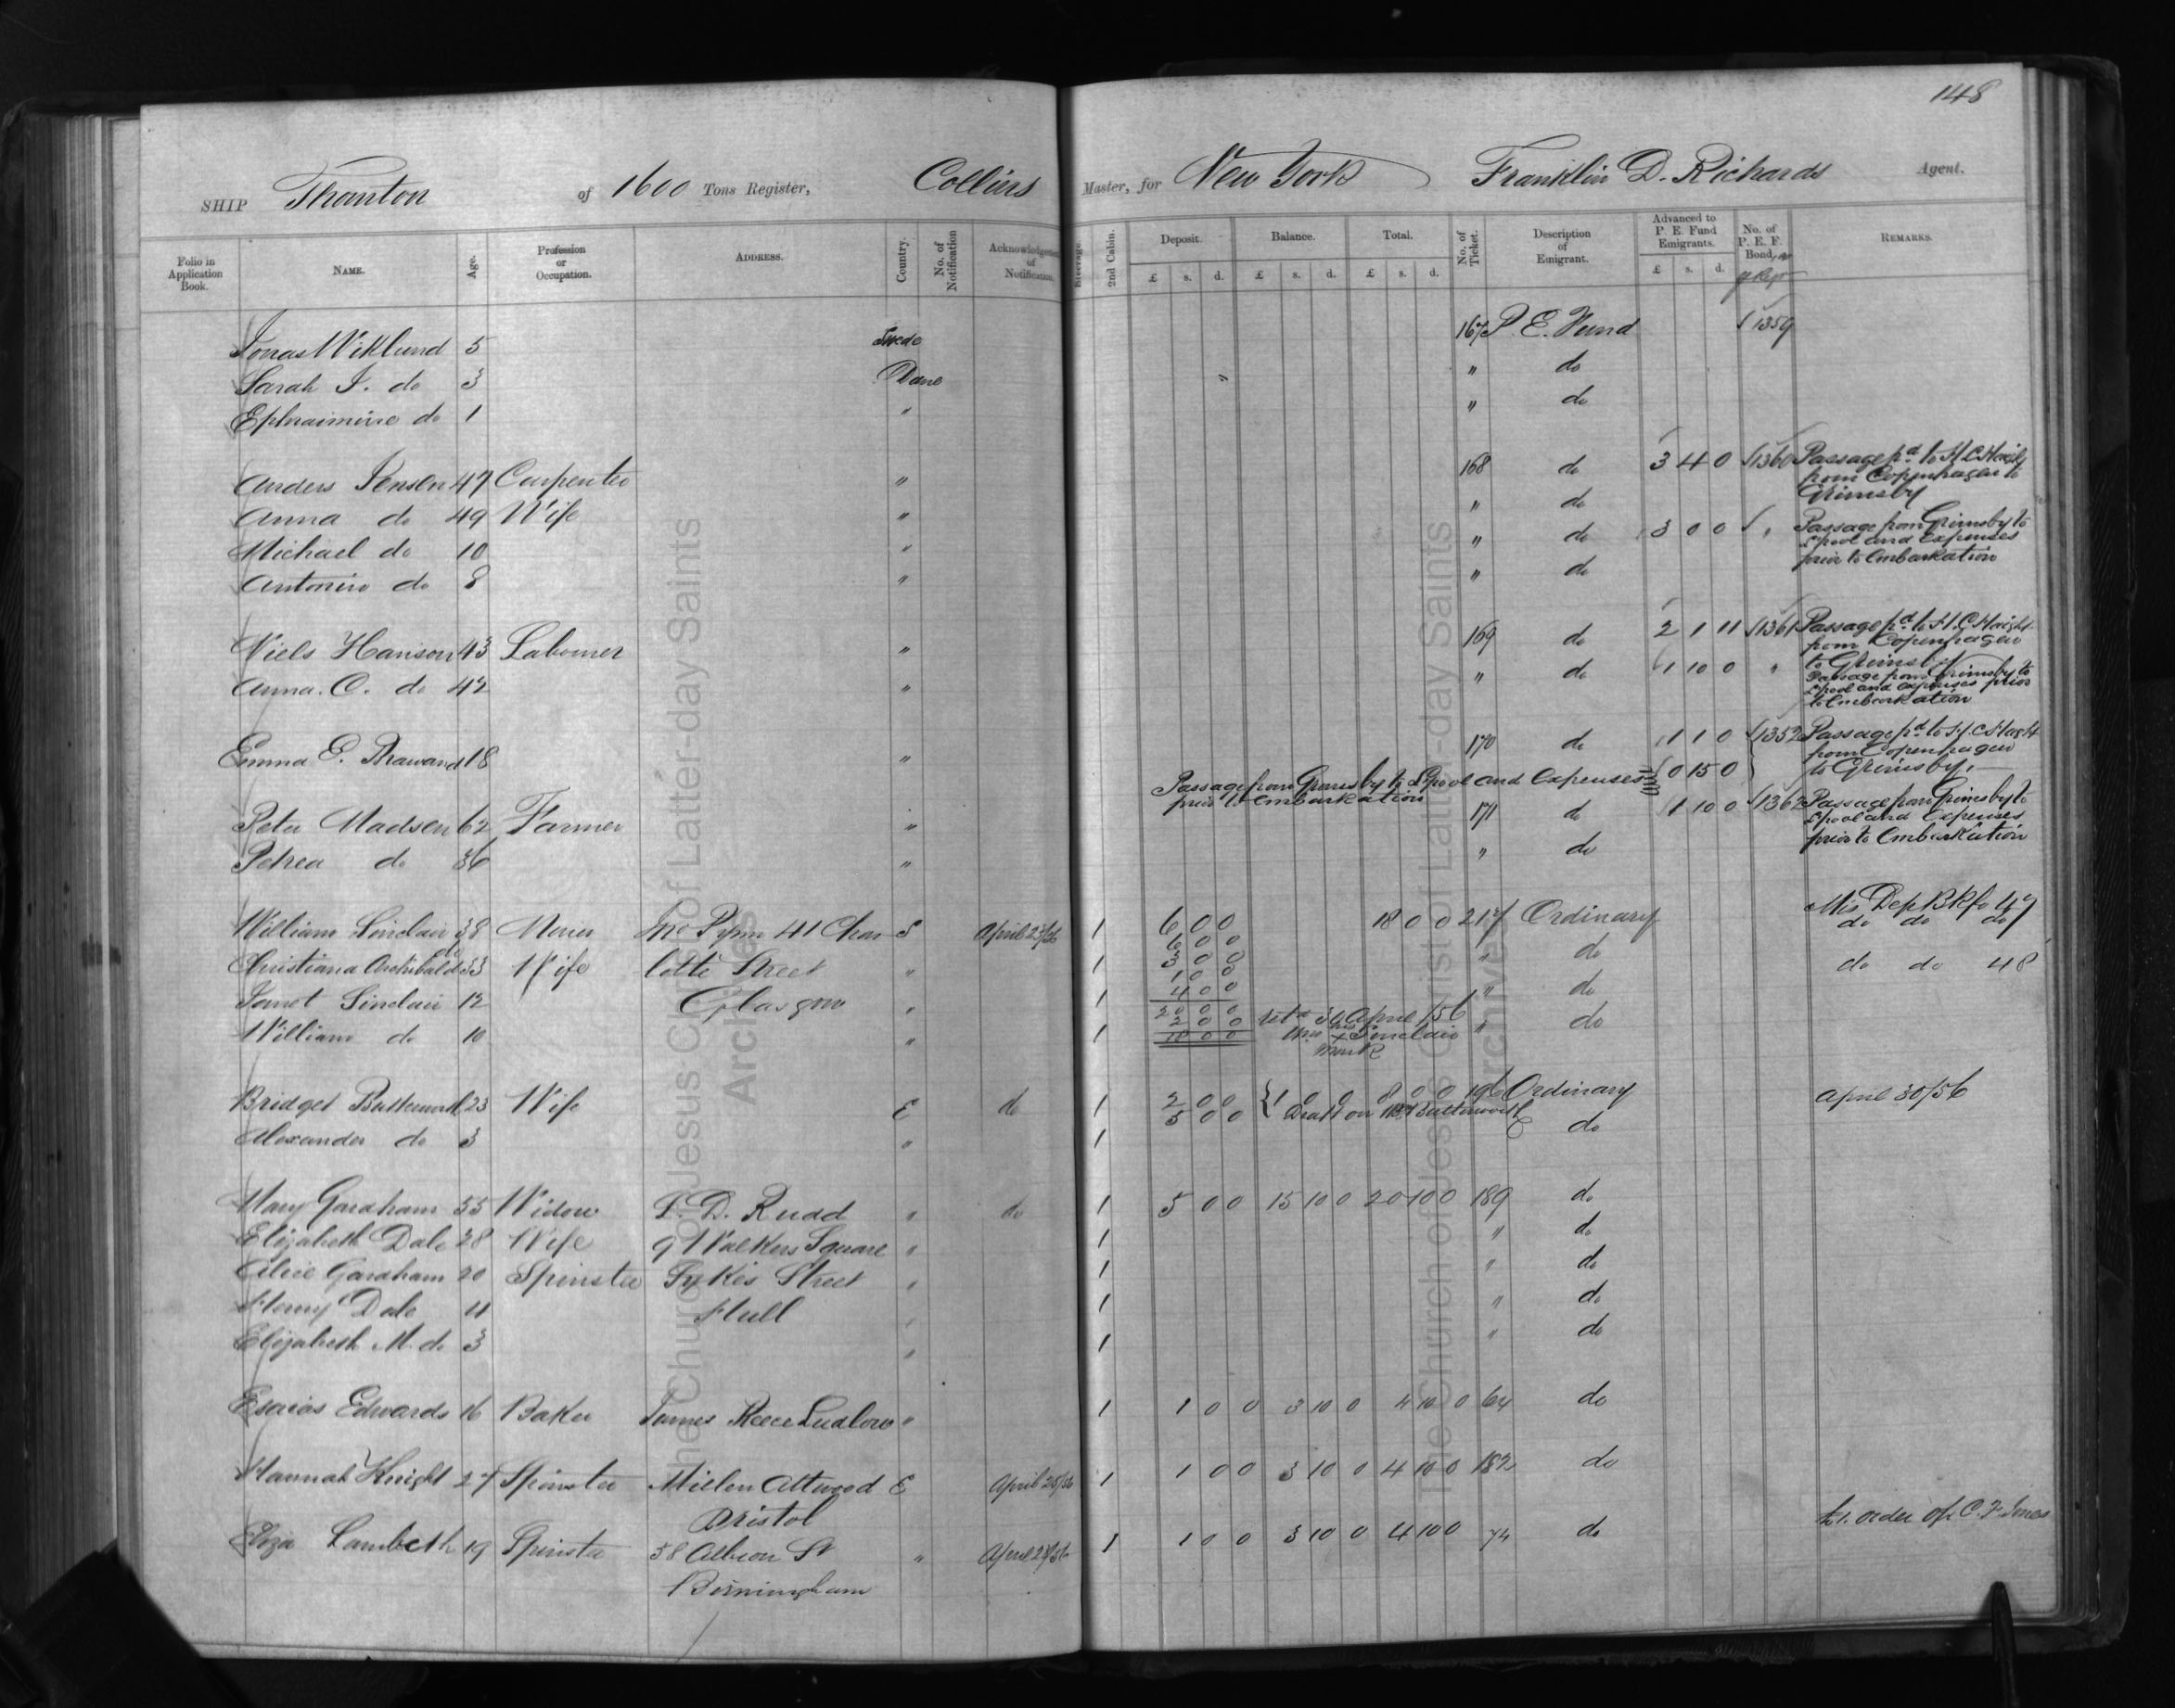 148
SHIP Thornton of 1600 Tons Register, Collins Master, for New York Franklin D. Richards Agent.
Folio in Application Book. NAME. Age. Profession or Occupation. ADDRESS. Country. No. of Notification Acknowledgement of Notification. Steerage. 2nd Cabin. Deposit. £ s. d. Balance. £ s. d. Total. £ s. d. No. of Ticket. Description of Emigrant. Advanced to P. E. Fund Emigrants. £ s. d. No. of P. E. F. Bond, REMARKS.
Jonas Wiklund 5 Swede 167 P. E. Fund 1359
Sarah J. do 3 Dane " do
Ephraimine do 1 " " do
Anders Jensen 47 Carpenter " 168 do 3 4 0 1360 Passage pd. to H. C. Haight
from Copenhagen to
Grimsby
Anna do 49 Wife " " do
Michael do 10 " " do 3 0 0 " Passage from Grimsby to
L'pool and Expenses
prior to Embarkation
Antonin do 8 " " do
Niels Hanson 43 Labourer " 169 do 2 1 11 1361 Passage pd. to H. C. Haight
from Copenhagen
to Grimsby
Anna. C. do 42 " " do 1 10 0 " Passage from Grimsby to
L'pool and expenses prior
to Embarkation
Emma E. 18 " 170 do 1 1 0 1352 Passage pd to H. C. Haight
from Copenhagen
to Grimsby.
Passage from Grimsby to L'pool and Expenses 0 15 0
prior to Embarkation
Peter Madsen 62 Farmer " 171 do 1 10 0 1362 Passage from Grimsby to
L'pool and Expenses
prior to Embarkation
Petrea do 36 " " do
William Sinclair 38 Jno Pymm 41 Char S April 23/56 1 6 0 0 18 0 0 217 Ordinary Mis Dep Bk fo 47
6 0 0 do do do
Christiana Archibald 33 Wife lotte Street " 1 3 0 0 " do do do 48
1 0 0
Janet Sinclair 12 Glasgow " 1 4 0 0 " do
20 0 0
2 0 0 April /56
William do 10 " 1 18 0 0 Sinclair " do
mark
Bridget Butterworth 23 Wife E do 1 2 0 0 1 0 0 8 0 0 196 Ordinary April 30/56
5 0 0 Draft on Butterworth
Alexander do 3 " 1 do
Mary Gardham 55 Widow D. Rudd " do 1 5 0 0 15 10 0 20 10 0 189 do
Elizabeth Dale 28 Wife 9 Walkers Square " 1 " do
Alice Gardham 20 Spinster Sykes Street " 1 " do
Henry Dale 11 Hull " 1 " do
Elizabeth M. do 3 " 1 " do
Esaias Edwards 16 Baker James Reece Ludlow " 1 1 0 0 3 10 0 4 10 0 64 do
Hannah Knight 27 Spinster Millen Attwood E April 23/56 1 1 0 0 3 10 0 4 10 0 182 do
Bristol
Eliza Lambeth 19 Spinster 58 Albion St " April 1 1 0 0 3 10 0 4 10 0 74 do £1. order of C. F. Jones
Birmingham
The Church of Jesus Christ of Latter-day Saints
Archives
The Church of Jesus Christ of Latter-day Saints
Archives